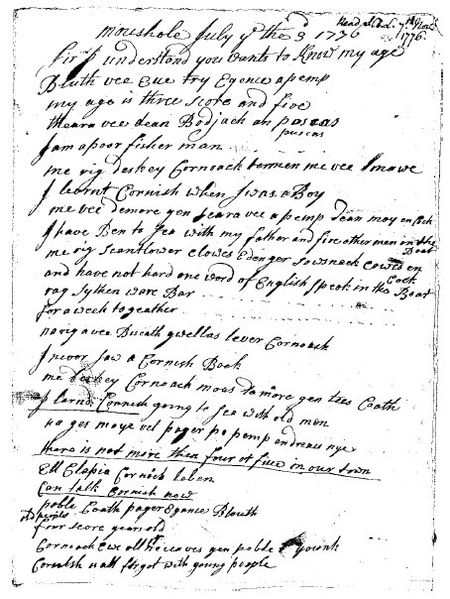 mousehole July ye the 3 1776
Read at Ant. 7th Nov. 1776.
Sir I understand you wants to Know my age
Bluth vee Eue try Egence a pemp
my age is three score and five
theara vee dean Bodjack an poscas
puscas
I am a poor fisher man
me rig deskey Cornoack termen me vee maw
I learnt Cornish when I was a Boy
me vee demore gen seara vee a pemp dean moy en cock
I have Ben to sea with my father and five other men in the Boat
me rig scantlower clowes Edenger sowsnack cowes en cock
and have not hard one word of English spoak in the Boat
rag sythen ware Bar
for a week toogather
na rig a vee Biscath gwellas lever Cornoack
I never saw a Cornish Book
me deskey Cornoack moas da more gen tees Coath
I larn'd Cornish going to sea with old men
na ges moye vel pager po pemp en dreau nye
there is not more then four or five in our town
Ell Clapia Cornish leben
Can talk Cornish now
poble Coath pager Egance Blouth
old peoples four score years old
Cornoack Ewe all ne ceaves gen poble younk
Cornish is all forgot with young people